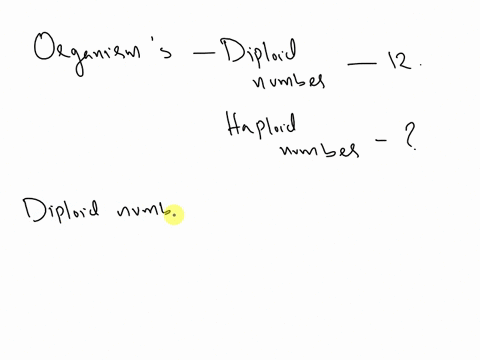 Organism's — Diploid
number — 12.
Haploid
number – ?
Diploid numb.